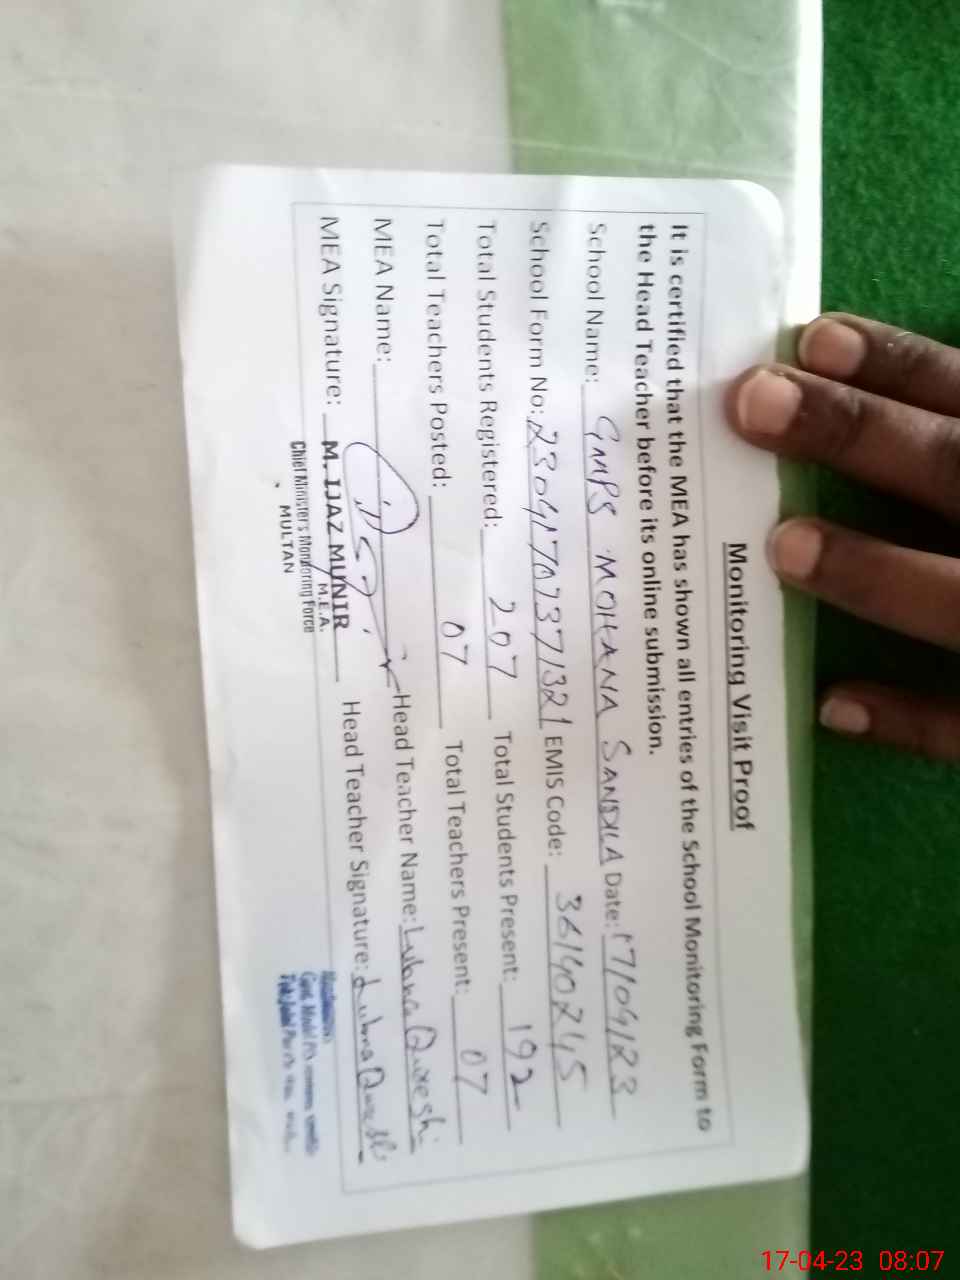 Monitoring Visit Proof
It is certified that the MEA has shown all entries of the School Monitoring Form to
the Head Teacher before its online submission.
School Name: GMPS MOHANA SANDILA Date: 17/04/23
School Form No: 23041707371321 EMIS Code: 36140245
Total Students Registered: 207 Total Students Present: 192
Total Teachers Posted: 07 Total Teachers Present: 07
MEA Name: Head Teacher Name: Lubna Qureshi
MEA Signature: Head Teacher Signature: Lubna Qureshi
M. IJAZ MUNIR
M.E.A.
Chief Minister's Monitoring Force
MULTAN
Govt. Model P/S
17-04-23 08:07